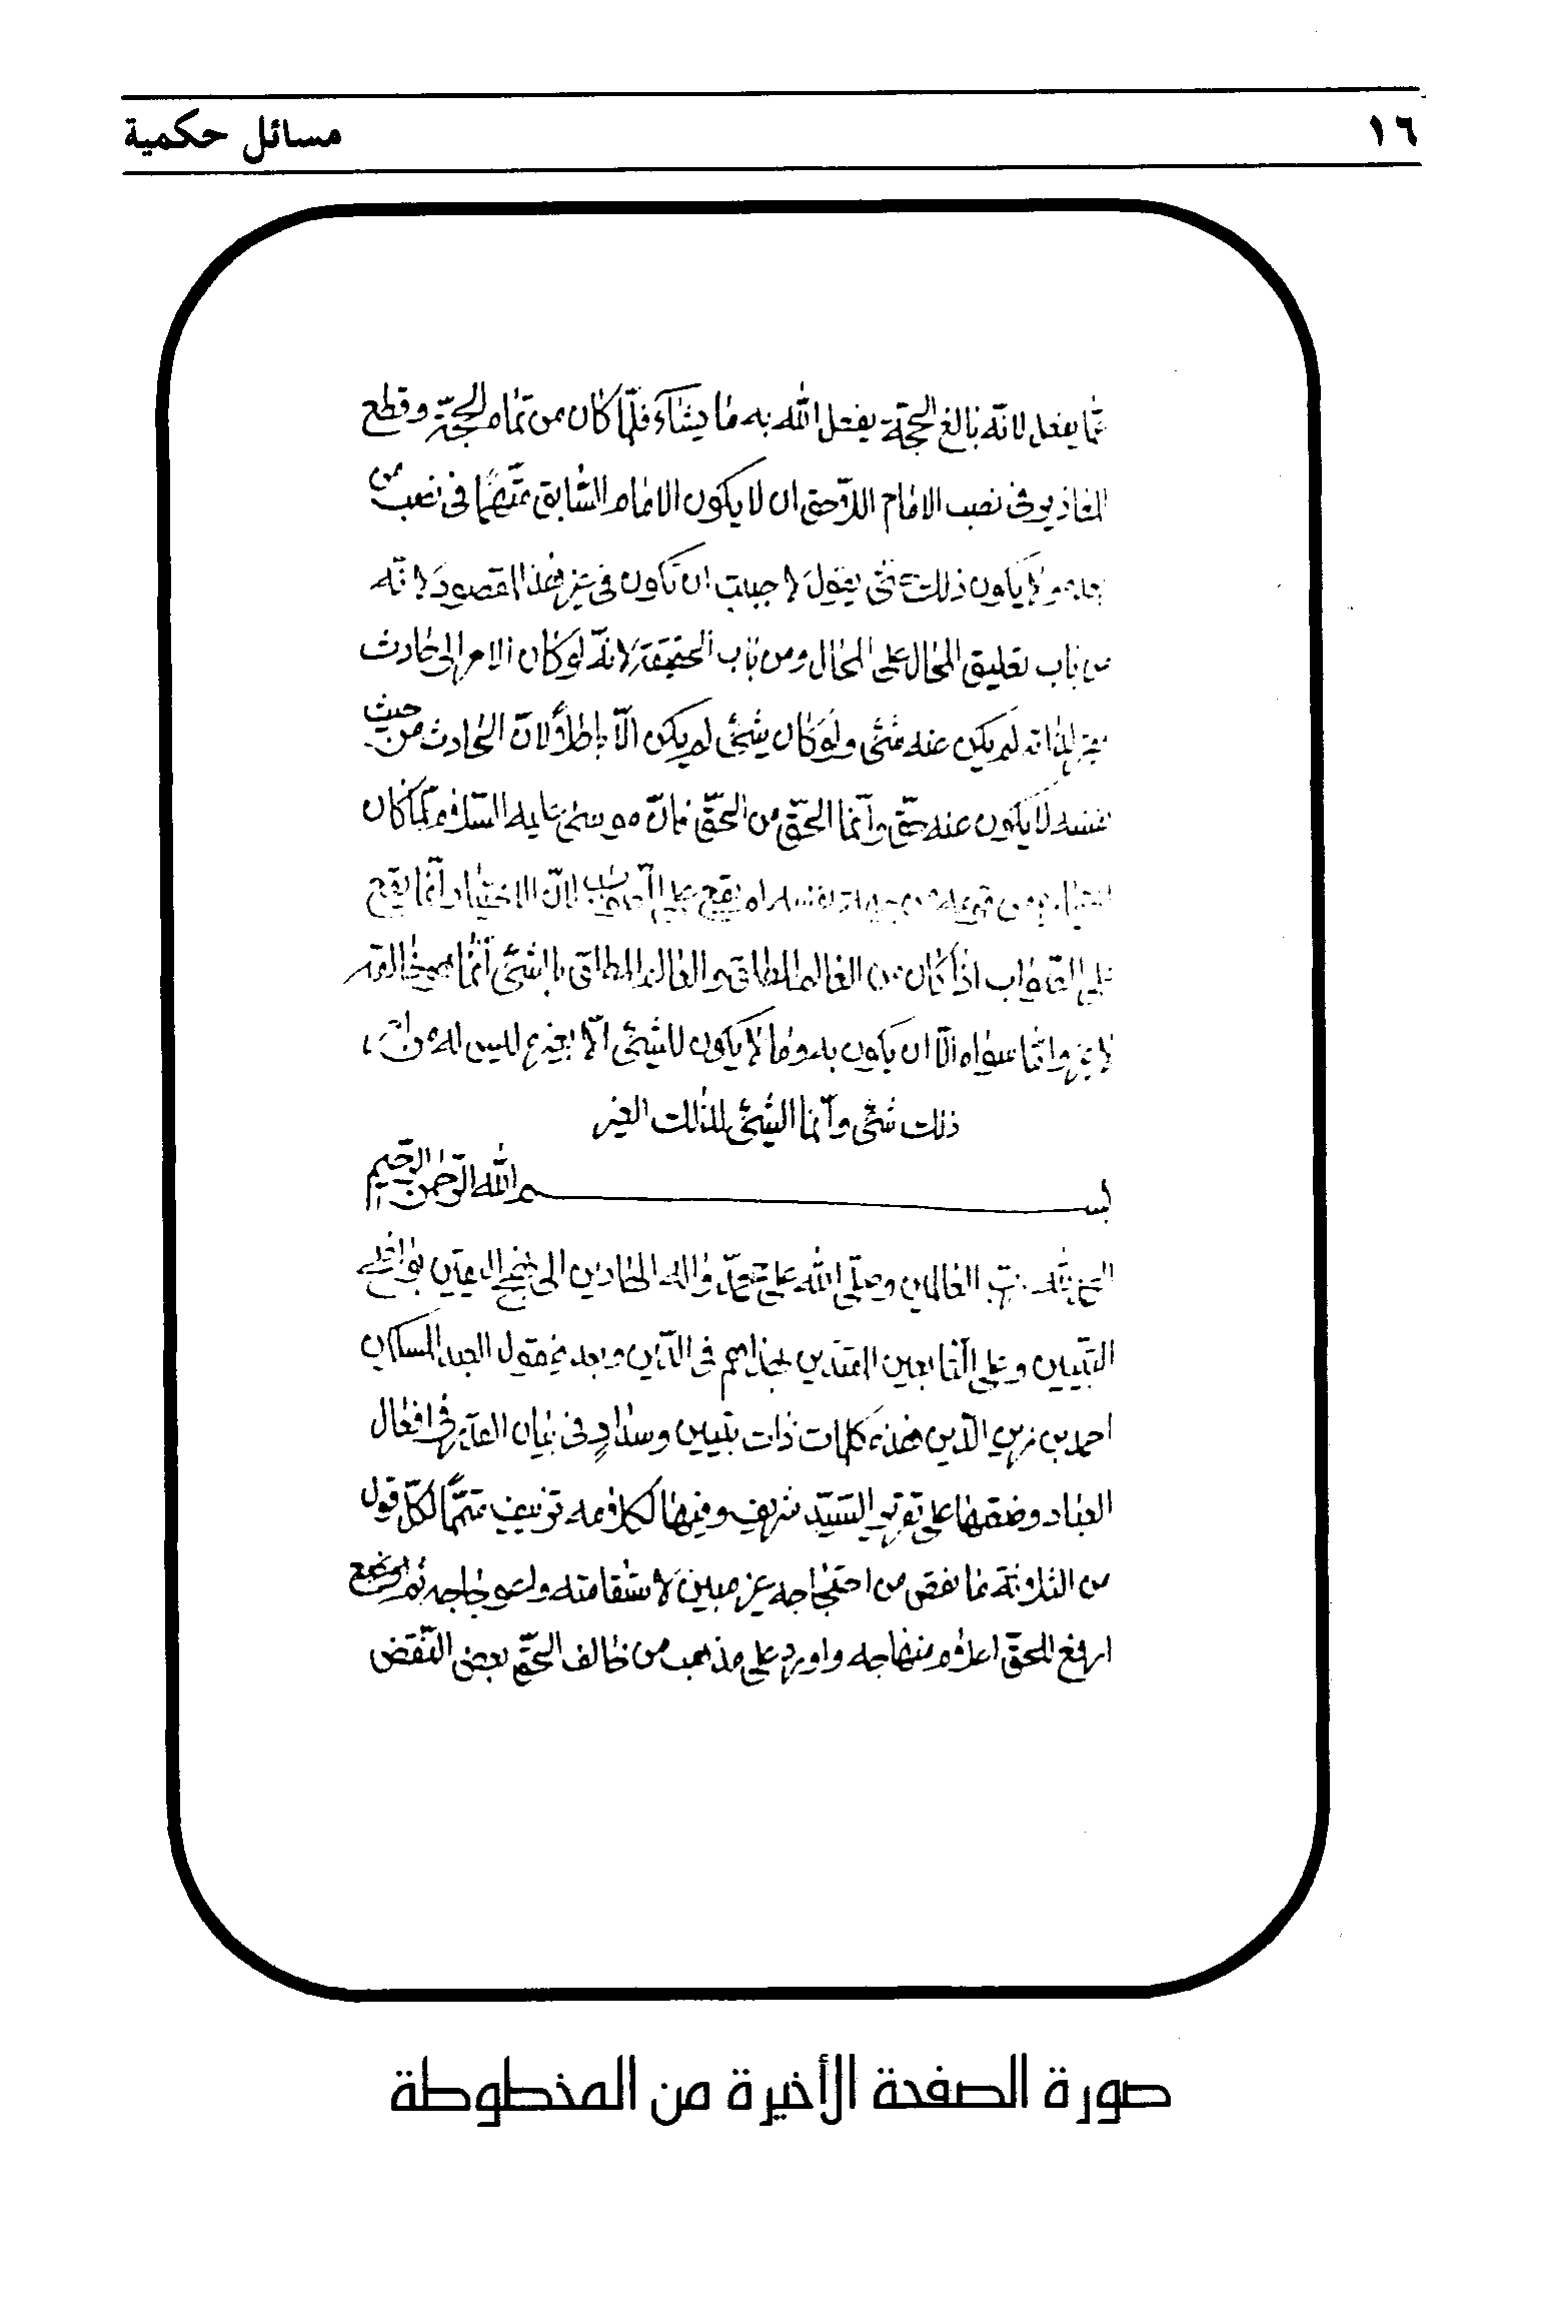 ١٦
مسائل حكمية
عما يفعل لانه بالغ الحجة يفعل الله به ما يشاء فلما كان من تمام الحجة وقطع
المعاذير في نصب الامام اللاحق ان لا يكون الامام السابق متهما في نصب من
بعده ولا يكون ذلك حتى يقول لا يجب ان تكون في غير هذا المقصود لانه
من باب تعليق المحال على المحال ومن باب الحقيقة لانه لو كان الامر الى حادث
لم يكن عنه شئ ولو كان شئ لم يكن الا باطلا لان الحادث من حيث
نفسه لا يكون عنه حق وانما الحق من الحق فان موسى عليه السلام لما كان
من قومه من جهة نفسه لم يقع على الصواب لان الاختيار انما يقع
على الصواب اذا كان من العالم المطلق والعالم المطلق بالشئ انما هو خالقه
لا غير واما سواه الا ان يكون به وما لا يكون للشئ الا بغيره ليس له من
ذلك شئ وانما الشئ لذلك الغير
بسم الله الرحمن الرحيم
الحمد لله رب العالمين وصلى الله على محمد واله الهادين الى نهج اليقين
التبيين وعلى التابعين المقتدين بهم في الدين وبعد فيقول العبد المسكين
احمد بن زين الدين هذه كلمات ذات تبيين وسداد في بيان العلة في افعال
العباد وضعتها على تقرير السيد شريف وفيها لكلامه تزييف متمما لكل قول
من الثلاثة ما نقص من احتجاجه غير مبين لاستقامته ولا عوجاجه ثم
ارفع للحق اعلام منهاجه واورد على مذهب من خالف الحق بعض النقض
صورة الصفحة الأخيرة من المخطوطة